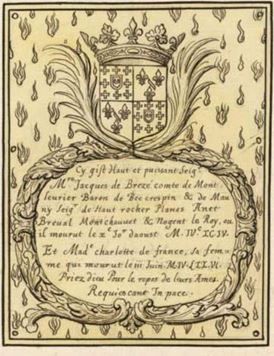 Cy gist Haut et puissant Seigr
Mre Jacques de Breze comte de Mont
leurier Baron de Bec crespin & de Mau
ny Seigr de Haut rocher Planes Anet
Breual Montchauuet & Nogent le Roy, ou
il mourut le xe Jor daoust M. IVc XC IV.
Et Made charlotte de france, sa fem-
me que mourut le iii Juin M.IV.LXX.VI.
Priez dieu Pour le repos de leurs Ames.
Requiescant In pace.